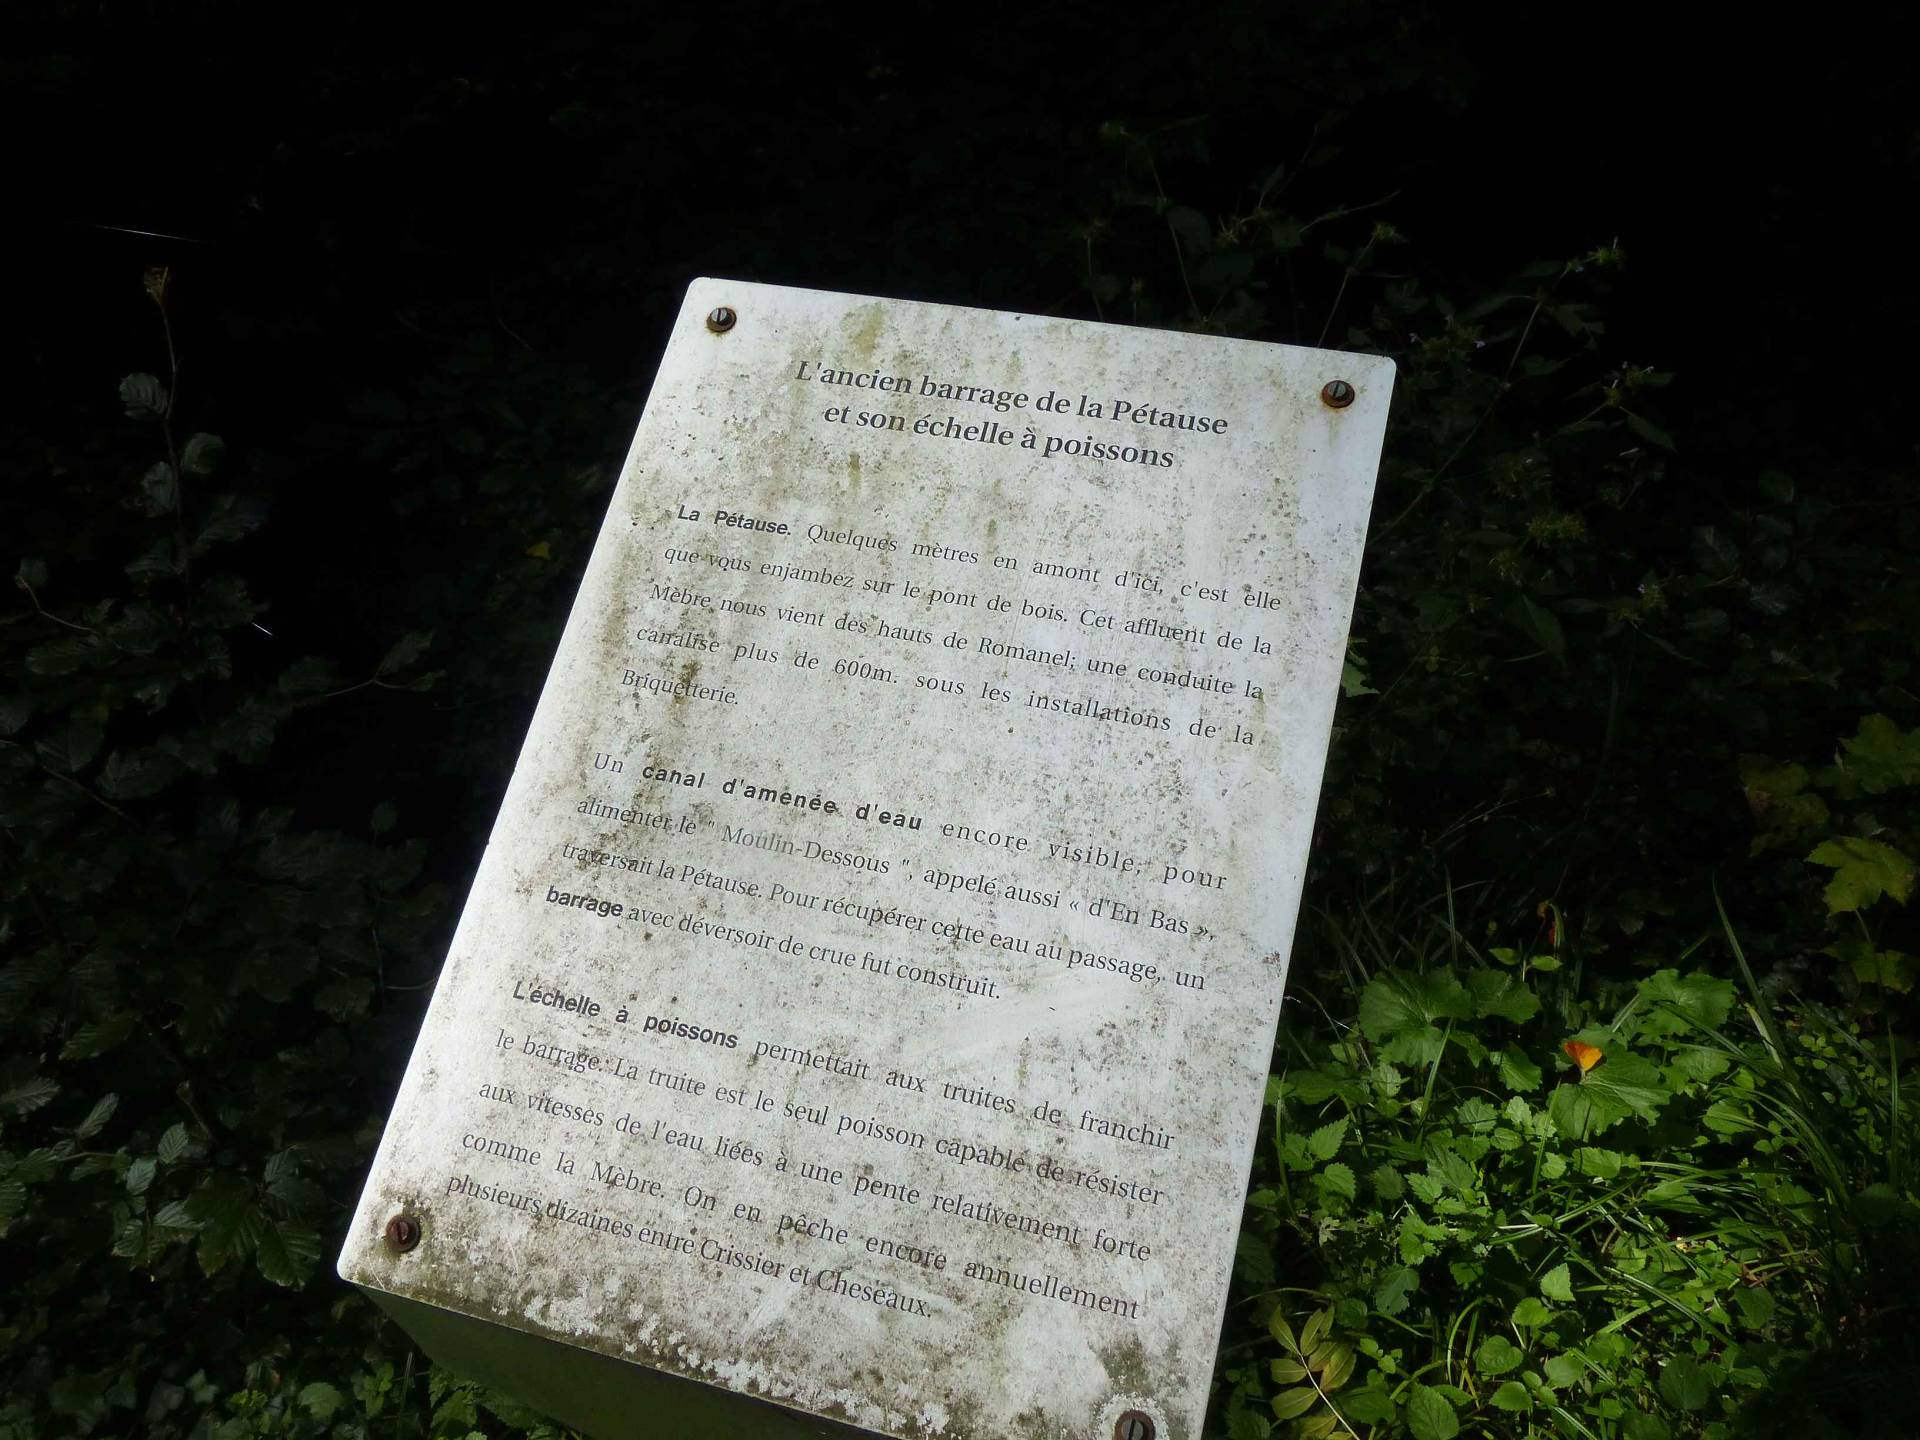 L'ancien barrage de la Pétause
et son échelle à poissons
La Pétause. Quelques mètres en amont d'ici, c'est elle
que vous enjambez sur le pont de bois. Cet affluent de la
Mèbre nous vient des hauts de Romanel; une conduite la
canalise plus de 600m. sous les installations de la
Briquetterie.
Un canal d'amenée d'eau encore visible, pour
alimenter le " Moulin-Dessous ", appelé aussi « d'En Bas »,
traversait la Pétause. Pour récupérer cette eau au passage, un
barrage avec déversoir de crue fut construit.
L'échelle à poissons permettait aux truites de franchir
le barrage. La truite est le seul poisson capable de résister
aux vitesses de l'eau liées à une pente relativement forte
comme la Mèbre. On en pêche encore annuellement
plusieurs dizaines entre Crissier et Cheseaux.